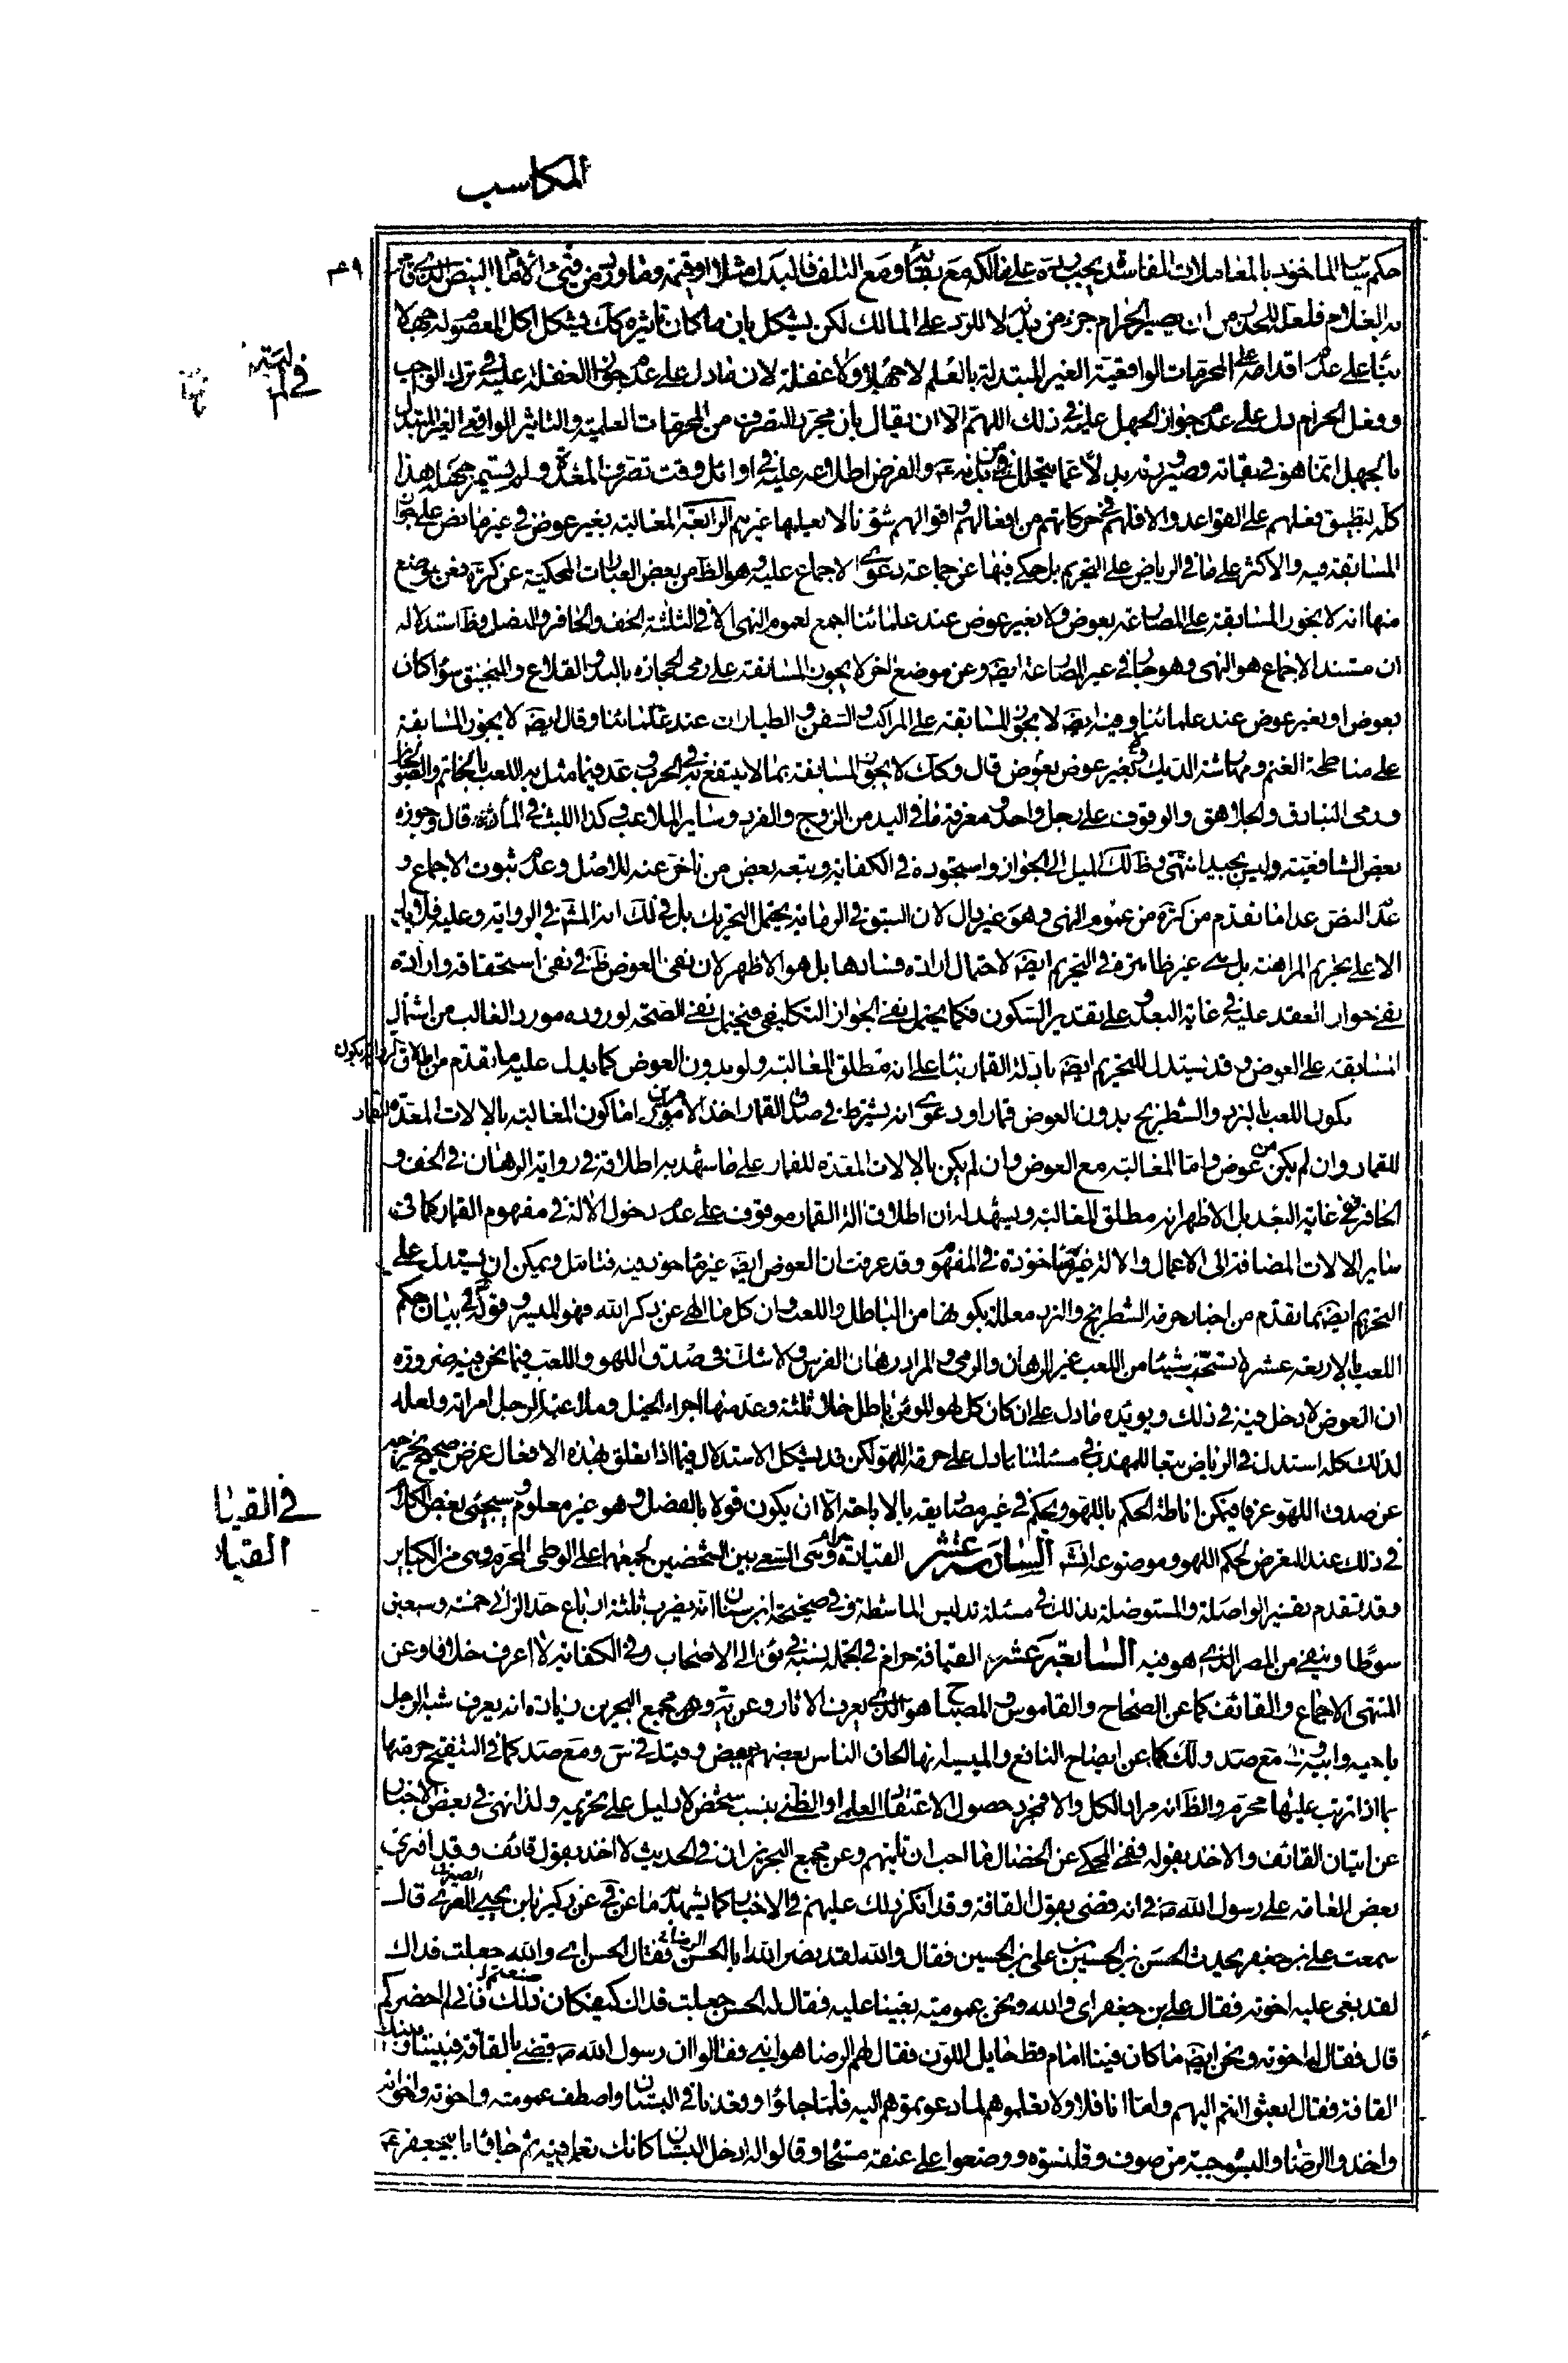 المكاسب
٤٩
حكم سائر المأخوذ بالمعاملات الفاسدة يجب رده على مالكه مع بقائه ومع التلف فالبدل مثلا او قيمة وما ورد من قئ الامام البيض الذي
به الغلام فلعله للحذر من ان يصير الحرام جزء من بدنه لا للرد على المالك لكن يشكل بان ما كان تأثيره كك فيشكل اكل المعصوم له جهلا
بناء على عدم اقدامه على المحرمات الواقعية الغير المبتدلة بالعلم لا جهلا ولا غفلة لان ما دل على عدم جواز الغفلة عليه في ترك الواجب
وفعل الحرام دل على عدم جواز الجهل عليه في ذلك اللهم الا ان يقال بان مجرد التصرف من المحرمات العلمية والتأثير الواقعي الغير المتبدل
بالجهل انما هو في بقائه وصيرورته بدلا عما يتحلل من بدنه ع والفرض اطلاعه عليه في اوائل وقت تصرف المعدة ولم يستمر جهله هذا
كله لتطبيق فعلهم على القواعد والا فلهم في حركاتهم من افعالهم واقوالهم شؤنا لا يعلمها غيرهم الرابعة المغالبة بغير عوض في غير ما نص على جواز
المسابقة فيه والاكثر على ما في الرياض على التحريم بل حكى فيها عن جماعة دعوى الاجماع عليه وهو الظ من بعض العبارات المحكية عن كرة فعن موضع
منها انه لا يجوز المسابقة على المصارعة بعوض ولا بغير عوض عند علمائنا اجمع لعموم النهى الا في الثلثة الخف والحافر والنصل وظ استدلاله
ان مستند الاجماع هو النهى وهو جار في غير المصارعة ايضا وعن موضع اخر لا يجوز المسابقة على رمى الحجارة باليد والمقلاع والمنجنيق سواء كان
بعوض او بغير عوض عند علمائنا وفيه ايضا لا يجوز المسابقة على المراكب والسفن والطيارات عند علمائنا وقال ايضا لا يجوز المسابقة
على مناطحة الغنم ومهارشة الديك بغير عوض وبعوض قال وكك لا يجوز المسابقة بما لا ينتفع به في الحرب وعد فيما مثل به اللعب بالخاتم والصولجان
ورمى البنادق والجلاهق والوقوف على رجل واحدة ومعرفة ما في اليد من الزوج والفرد وساير الملاعب وكذا اللبث في الماء قال وجوزه
بعض الشافعية وليس بجيد انتهى وظ ذلك الميل الى الجواز واستجوده في الكفاية وتبعه بعض من تأخر عنه للاصل وعدم ثبوت الاجماع و
عدم النص عدا ما تقدم من كرة من عموم النهى وهو غير دال لان السبق في الرواية يحتمل التحريك بل في لك انه المش في الرواية وعليه فلا يدل
الا على تحريم المراهنة بل هي غير ظاهرة في التحريم ايضا لاحتمال ارادة فسادها بل هو الاظهر لان نفى العوض ظ في نفى استحقاقه وارادة
نفى جواز العقد عليه في غاية البعد وعلى تقدير السكون فكما يحتمل نفى الجواز التكليفي فيحتمل نفى الصحة لوروده مورد الغالب من اشتمال
المسابقة على العوض وقد يستدل للتحريم ايضا بادلة القمار بناء على انه مطلق المغالبة ولو بدون العوض كما يدل عليه ما تقدم من اطلاق
يكون اللعب بالنرد والشطرنج بدون العوض قمارا ودعوى انه يشترط في صدق القمار احد الامرين اما كون المغالبة بالالات المعدة
للقمار وان لم يكن عوض واما المغالبة مع العوض وان لم يكن بالالات المعدة للقمار على ما يشهد به اطلاقه في رواية الرهان في الخف و
الحافر فهي في غاية البعد بل الاظهر انه مطلق المغالبة ويشهد له ان اطلاق الة القمار موقوف على عدم دخول الالة في مفهوم القمار كما في
ساير الالات المضافة الى الاعمال والالة غير مأخوذة في المفهوم وقد عرفت ان العوض ايضا غير مأخوذ فيه فتأمل ويمكن ان يستدل على
التحريم ايضا بما تقدم من اخبار حرمة الشطرنج والنرد معللة بكونها من الباطل واللعب وان كل ما الهى عن ذكر الله فهو الميسر وقوله ع في بيان حكم
اللعب بالاربعة عشر لا تستحب شيئا من اللعب غير الرهان والرمى والمراد رهان الفرس ولا شك في صدق اللهو واللعب فيما نحن فيه ضرورة
ان العوض لا دخل فيه في ذلك ويؤيده ما دل على ان كان كل لهو المؤمن باطل خلا ثلثة وعد منها اجراء الخيل وملاعبة الرجل امراته ولعله
لذلك كله استدل في الرياض تبعا للمهذب في مسئلتنا بما دل على حرمة اللهو لكن قد يشكل الاستدلال فيما اذا تعلق بهذه الافعال غرض صحيح يخرجه
عن صدق اللهو عرفا فيمكن اناطة الحكم باللهو ويحكم في غير مصاديقه بالاباحة الا ان يكون قولا بالفصل وهو غير معلوم وسيجئ بعض الكلام
في ذلك عند التعرض لحكم اللهو وموضوعه انش السادسة عشر القيادة حرام وهى السعى بين الشخصين لجمعهما على الوطى المحرم وهى من الكبائر
وقد تقدم تفسير الواصلة والمستوصلة بذلك في مسئلة تدليس الماشطة وفي صحيحة ابن سنان انه يضرب ثلثة ارباع حد الزانى خمسة وسبعين
سوطا وينفى من المصر الذى هو فيه السابعة عشر القيافة حرام في الجملة نسبه في ئق الى الاصحاب وفي الكفاية لا اعرف خلافا وعن
المنتهى الاجماع والقائف كما عن الصحاح والقاموس والمصباح هو الذى يعرف الاثار وعن ية ومجمع البحرين زيادة انه يعرف شبه الرجل
باخيه وابيه وفي مع صد ولك كما عن ايضاح النافع والميسية انها الحاق الناس بعضهم ببعض وقيد في س ومع صد كما في التنقيح حرمتها
بما اذا ترتب عليها محرم والظ انه مراد الكل والا فمجرد حصول الاعتقاد العلمى او الظنى بنسب شخص لا دليل على تحريمه ولذا نهى في بعض الاخبار
عن اتيان القائف والاخذ بقوله ففى المحكى عن الخصال ما احب ان تأتيهم وعن مجمع البحرين ان في الحديث لا اخذ بقول قائف وقد افترى
بعض العامة على رسول الله ص في انه قضى بقول القافة وقد انكر ذلك عليهم في الاخبار كما يشهد به ما عن في عن زكريا بن يحيى الصيرفى قال
سمعت على بن جعفر يحدث الحسن بن الحسين بن على بن الحسين فقال والله لقد نصر الله ابا الحسن الرضا ع فقال الحسن اى والله جعلت فداك
لقد بغى عليه اخوته فقال على بن جعفر اى والله ونحن عمومته بغينا عليه فقال له الحسن جعلت فداك كيف صنعتم فانى لم احضركم
قال فقال له اخوته ونحن ايضا ما كان فينا امام قط حايل اللون فقال لهم الرضا هو ابنى فقالوا ان رسول الله ص قضى بالقافة فبيننا وبينك
القافة فقال ابعثوا انتم اليهم واما انا فلا ولا تعلموهم لما دعوتموهم اليه فلما جاؤا وقعدنا في البستان واصطف عمومته واخوته واخواته
واخذوا الرضا والبسوه جبة من صوف وقلنسوة ووضعوا على عنقه مسحاة وقالوا له ادخل البستان كانك تعمل فيه ثم جاؤا بابى جعفر ع
في القيا
القياد